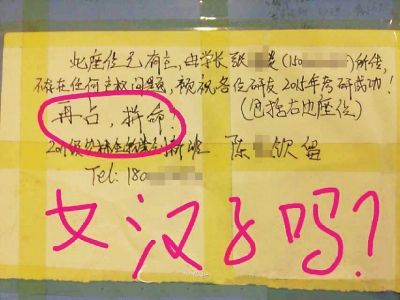 此座位已有主，由学长张 (150 )所传，
不存在任何产权问题，预祝各位研友2015年考研成功！
再占，拼命！ (包括右边座位)
创新班 陈 钦留
Tel: 180
女汉子吗？